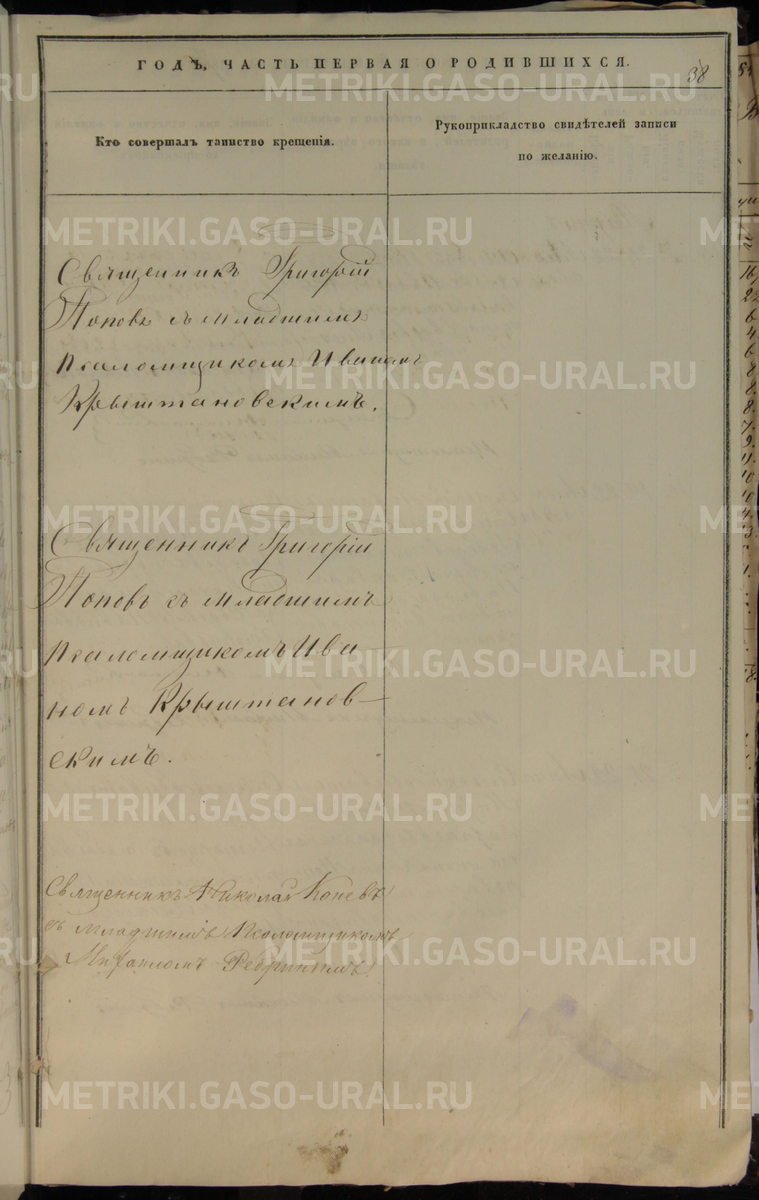 ГОДЪ, ЧАСТЬ ПЕРВАЯ О РОДИВШИХСЯ.
38
Кто совершалъ таинство крещенія.
Рукоприкладство свидѣтелей записи
по желанію.
Священникъ Григорій
Поповъ съ младшимъ
псаломщикомъ Иваномъ
Крыштановскимъ.
Священникъ Григорій
Поповъ съ младшимъ
псаломщикомъ Ива-
номъ Крыштанов-
скимъ.
Священникъ Николай
съ младшимъ Псаломщикомъ
Михаиломъ
METRIKI.GASO-URAL.RU